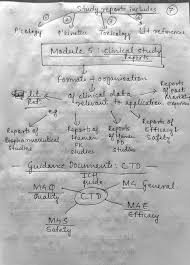 Study reports includes
P'cology P'kinetic Toxicology Lit references
Module 5 : Clinical study
Reports
Format & organisation
of clinical data
relevant to application
Lit
Ref.
Reports
of Post
Market
Reports of
Biopharmaceutical
Studies
Reports
of Human
PK
Studies
Reports of
Human
PD
Studies
Reports of
Efficacy &
Safety
Guidance Documents : CTD
ICH
guide
M4Q
Quality
M4 General
CTD
M4E
Efficacy
M4S
Safety